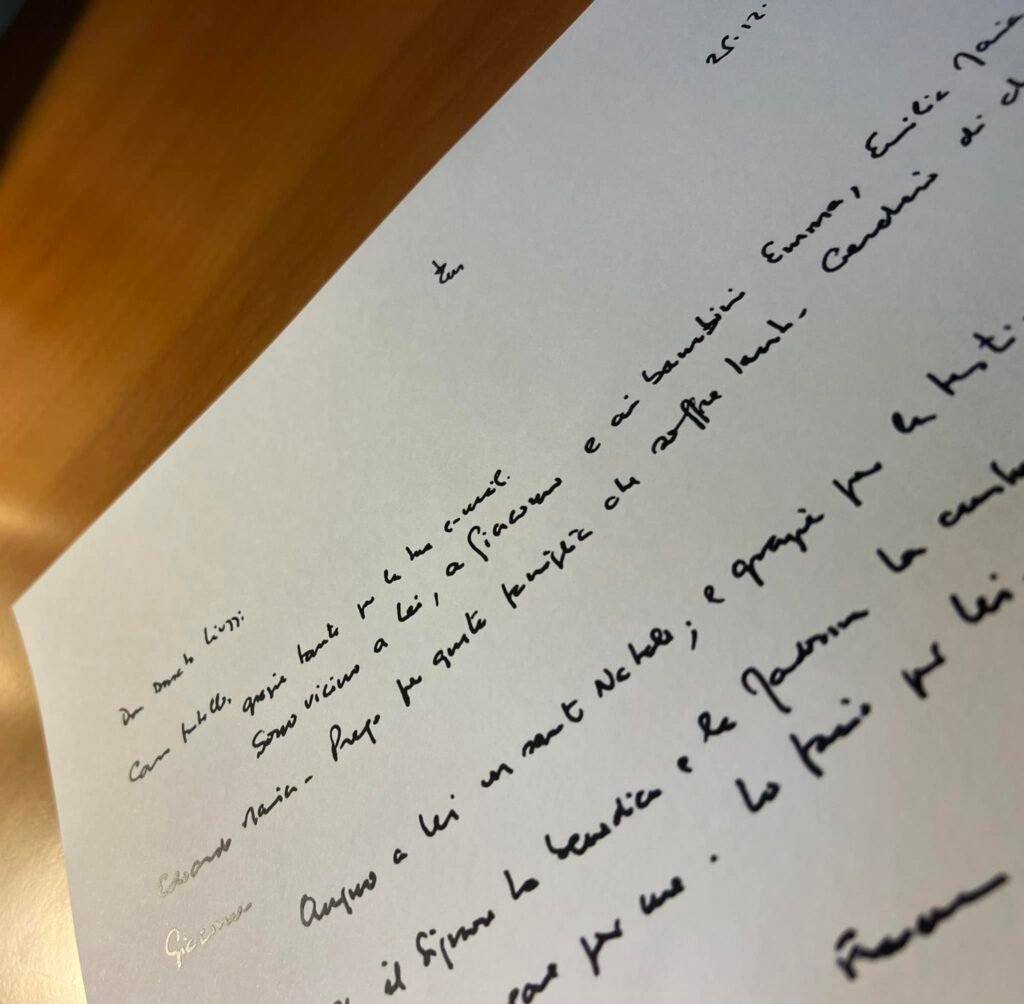 25.12.
Don Donato Liuzzi
Caro fratello, grazie tante per la sua e-mail.
Sono vicino a Lei, a Giacomo e ai bambini Emma, Emilia Maria
Edoardo Maria - Prego per questa famiglia che soffre tanto - Cerchiamo di
Giacomo -
Auguro a Lei un santo Natale; e grazie per la
il Signore la benedica e la Madonna la
per me. Lo faccio per Lei.